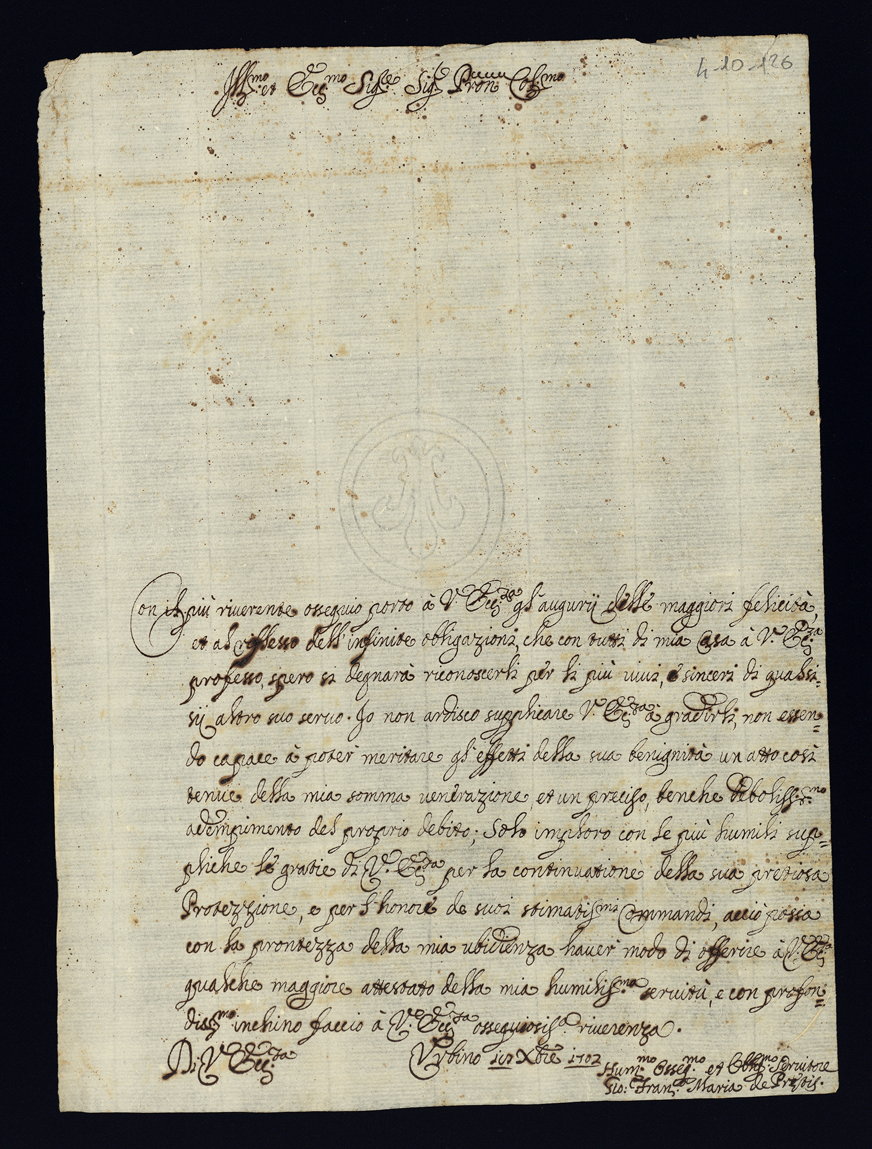 4-10-126
Ill.mo et Ecc.mo Sig.re Sig.r Pron Col.mo
Con il più riverente ossequio porto à V. Ecc.za gl'augurij delle maggiori felicità,
et al riflesso dell'infinite obligazioni, che con tutti di mia Casa à V. Ecc.za
professo, spero si degnarà riconoscerli per li più vivi, e sinceri di qualsi=
sij altro suo servo. Io non ardisco supplicare V. Ecc.za à gradirli, non essen=
do capace à poter meritare gl'effetti della sua benignità un atto così
tenue della mia somma venerazione et un preciso, benche deboliss.mo
adempimento del proprio debito; Solo imploro con le più humili sup=
pliche le gratie di V. Ecc.za per la continuatione della sua pretiosa
Protezzione, e per l'honore de suoi stimatis.mi Commandi, acciò possa
con la prontezza della mia ubidienza haver modo di offerire à V. Ecc.za
qualche maggiore attestato della mia humilis.ma servitù, e con profon=
diss.mo inchino faccio à V. Ecc.za ossequiosis.a riverenza.
Di V. Ecc.za
Urbino Xbre 1702
Hum.mo Osseq.mo et Obl.mo Servitore
Gio: Fran.co Maria de